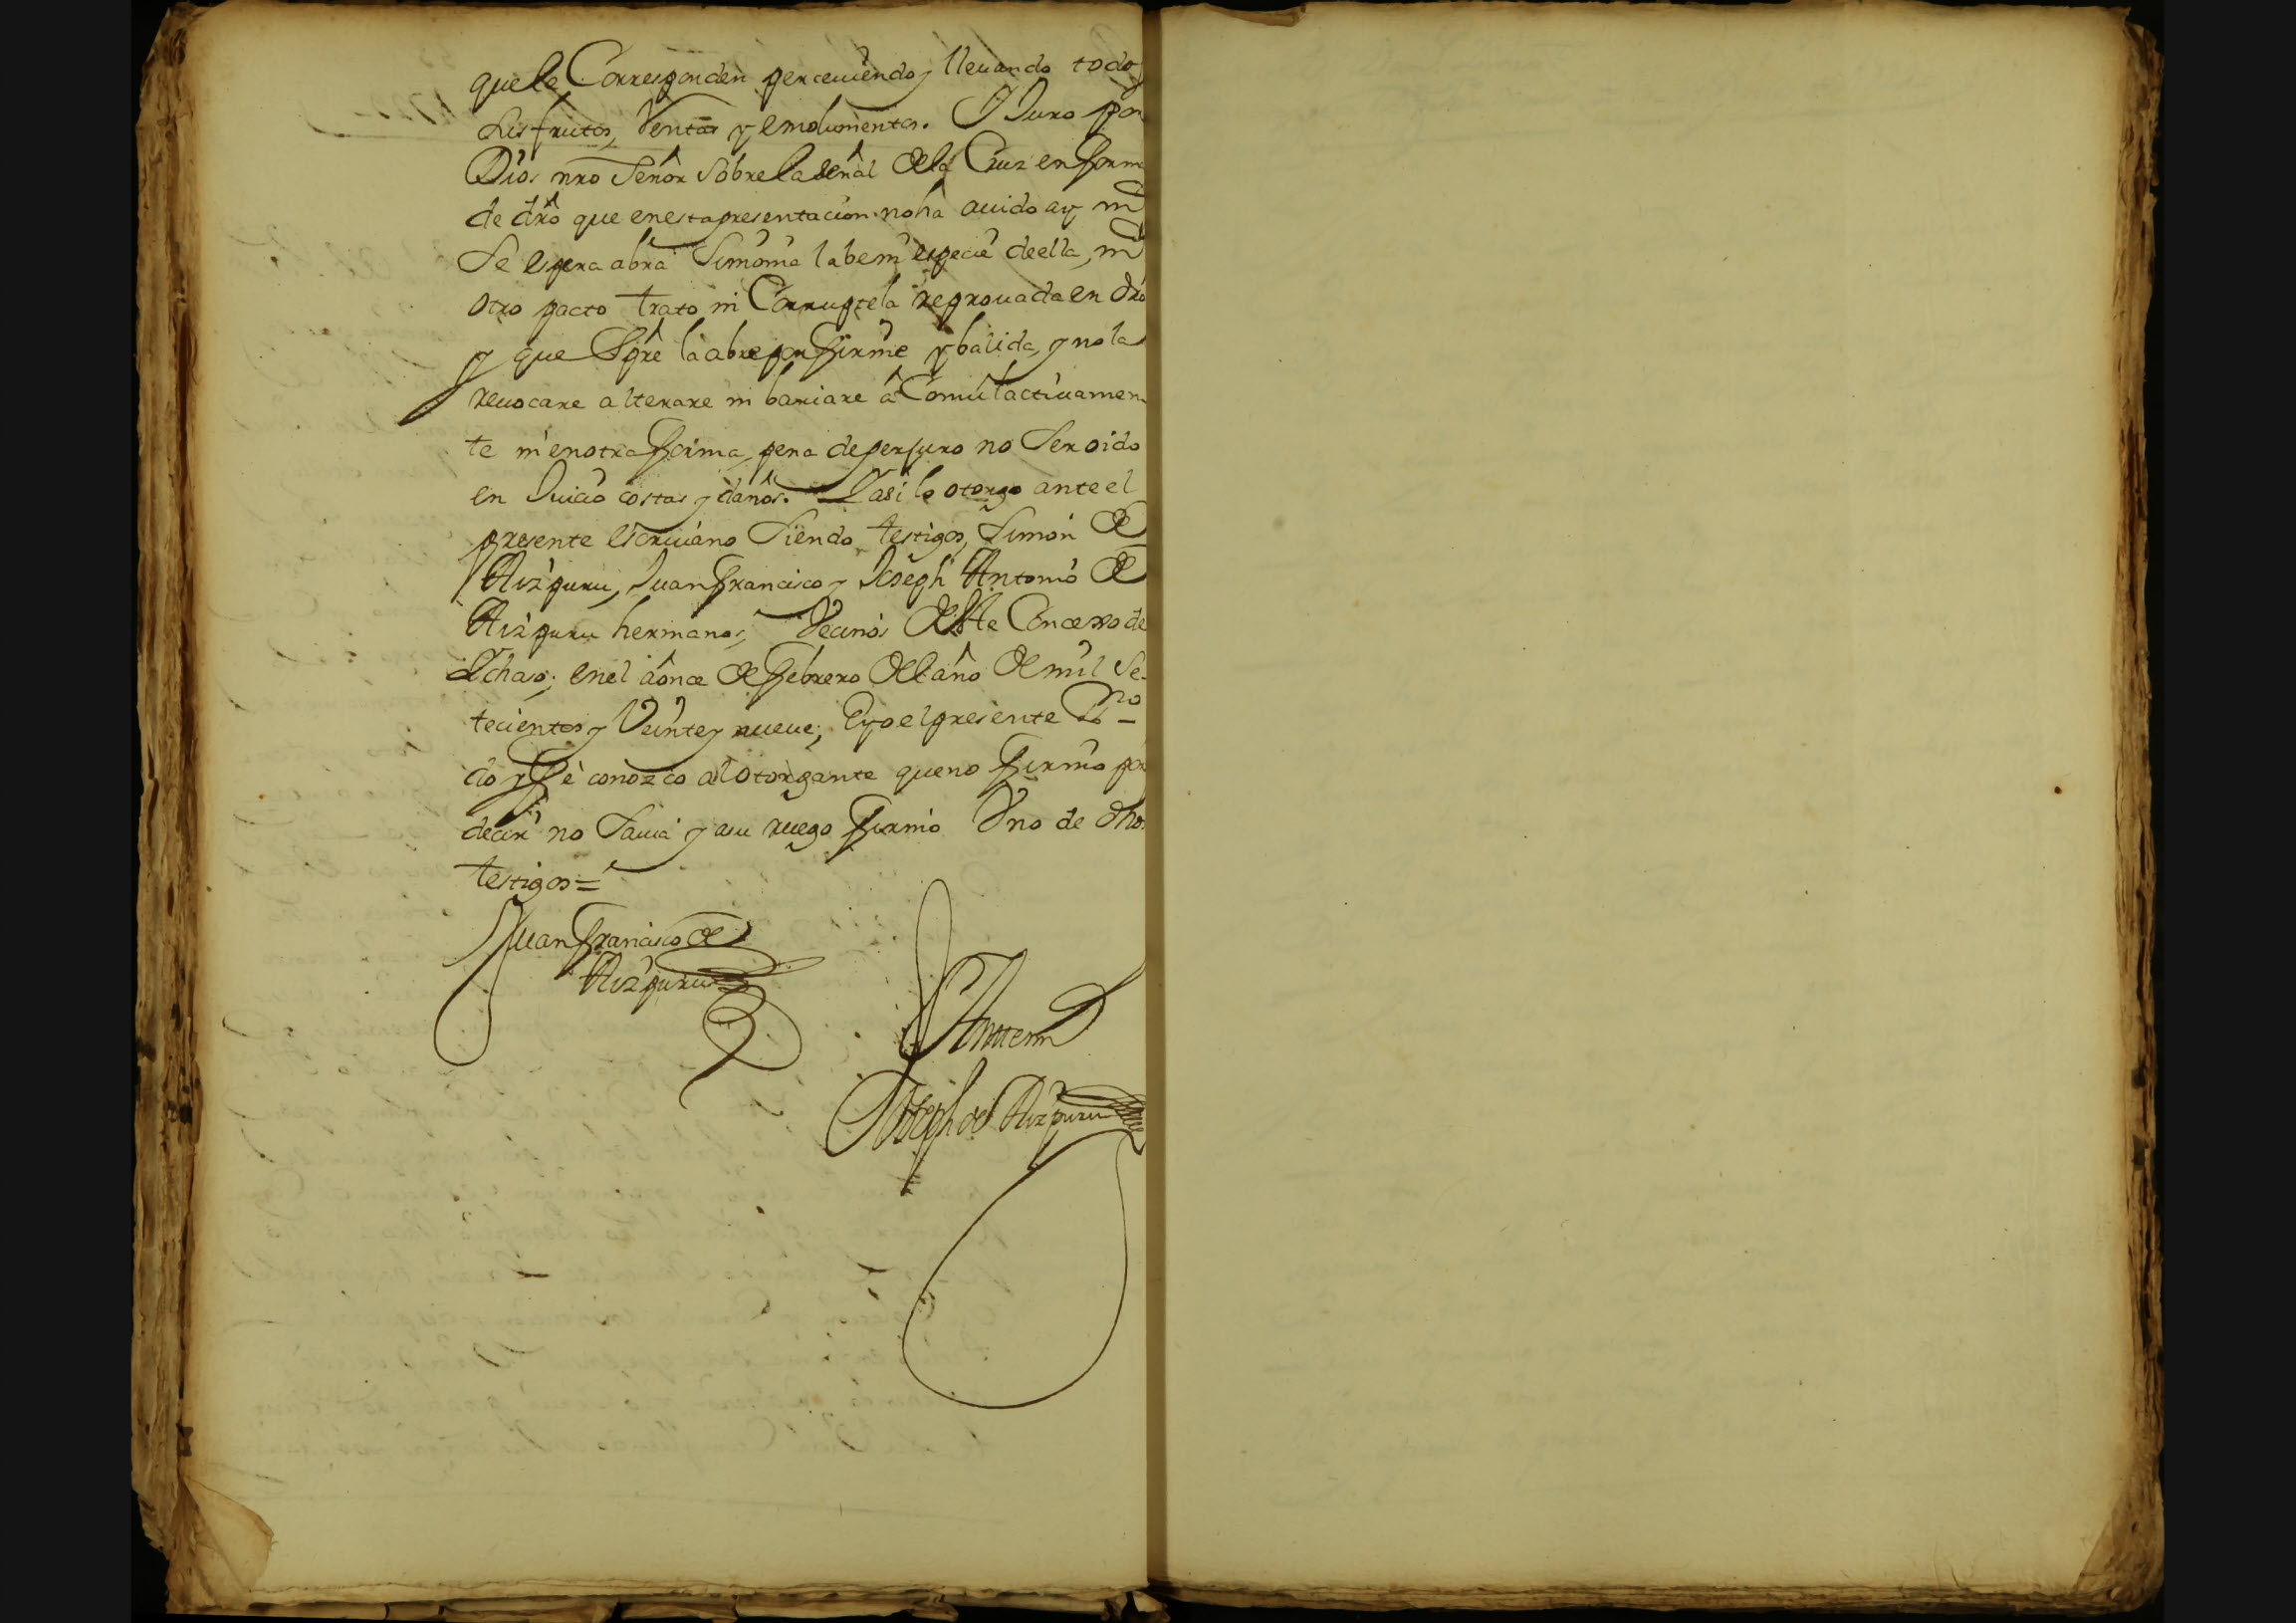 que le Corresponden perceuiendo y lleuando todos
sus frutos, Rentas y emolumentos. Y Juro por
Dios nro Señor sobre la señal de la Cruz en forma
de dro que en esta presentacion no ha auido ay ni
se espera abra Simonia labe ni especie de ella, ni
otro pacto trato ni Corruptela reprouada en dro
y que sipre la abre por firme y balida, y no la
reuocare alterare ni bariare
te ni en otra forma, pena de perjuro no ser oido
en Juicio costas y daños. Y asi lo otorgo ante el
presente escriuano siendo testigos, Simon de
Aizpuru, Juan Francisco y Joseph Antonio de
Aizpuru hermanos, Vecinos de este Concexo de
Ichaso; en el a once de febrero de el año de mil se-
tecientos y Veinte y nueue; E yo el presente ssno
doy fe conozco al otorgante que no firmo por
decir no sauia y a su ruego firmo Vno de dhos
testigos =
Juan Francisco de
Aizpuru
Ante mi
Joseph de Aizpuru